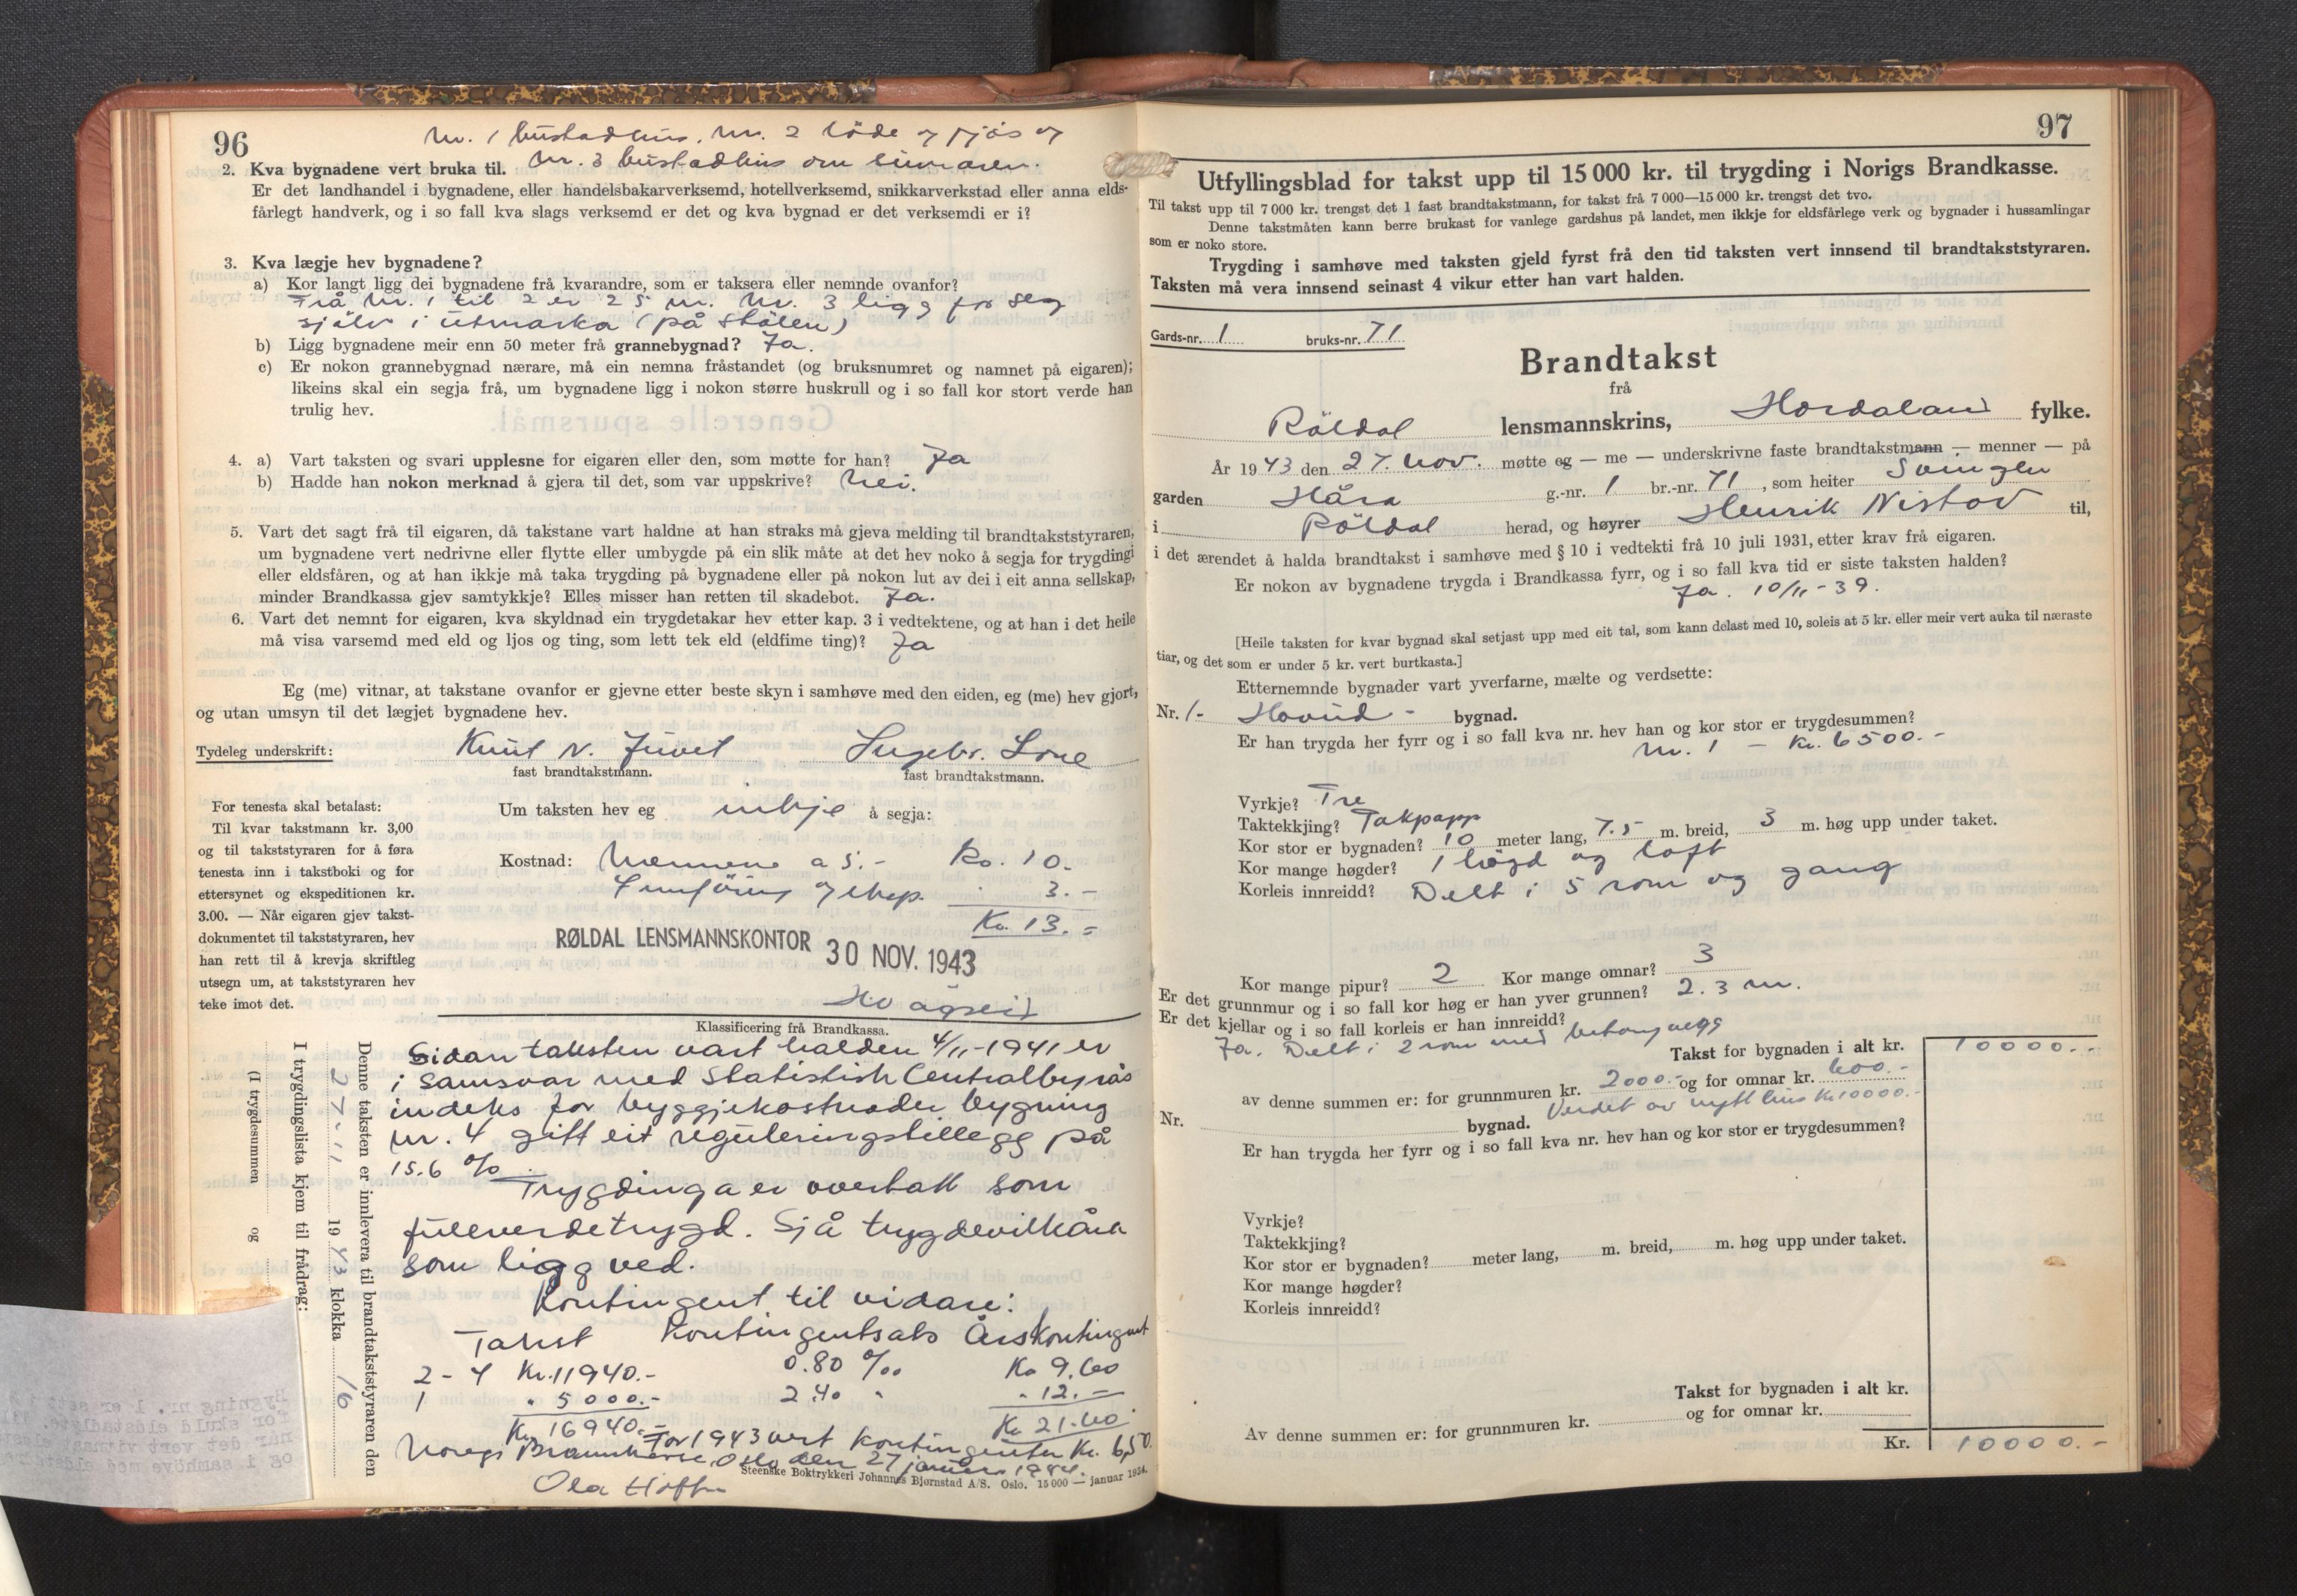 96
Nr. 1 bustadhus. Nr. 2 löde og fjös og
Nr. 3 bustadhus om sumaren.
2. Kva bygnadene vert bruka til.
Er det landhandel i bygnadene, eller handelsbakarverksemd, hotellverksemd, snikkarverkstad eller anna elds-
fårlegt handverk, og i so fall kva slags verksemd er det og kva bygnad er det verksemdi er i?
3. Kva lægje hev bygnadene?
a) Kor langt ligg dei bygnadene frå kvarandre, som er taksera eller nemnde ovanfor?
Frå Nr. 1 til 2 er 25 m. Nr. 3 ligg for seg
sjölv i utmarka (på stölen)
b) Ligg bygnadene meir enn 50 meter frå grannebygnad? Ja.
c) Er nokon grannebygnad nærare, må ein nemna fråstandet (og bruksnumret og namnet på eigaren);
likeins skal ein segja frå, um bygnadene ligg i nokon større huskrull og i so fall kor stort verde han
trulig hev.
4. a) Vart taksten og svari upplesne for eigaren eller den, som møtte for han? Ja
b) Hadde han nokon merknad å gjera til det, som var uppskrive? Nei.
5. Vart det sagt frå til eigaren, då takstane vart haldne at han straks må gjeva melding til brandtakststyraren,
um bygnadene vert nedrivne eller flytte eller umbygde på ein slik måte at det hev noko å segja for trygdingi
eller eldsfåren, og at han ikkje må taka trygding på bygnadene eller på nokon lut av dei i eit anna sellskap,
minder Brandkassa gjev samtykkje? Elles misser han retten til skadebot. Ja.
6. Vart det nemnt for eigaren, kva skyldnad ein trygdetakar hev etter kap. 3 i vedtektene, og at han i det heile
må visa varsemd med eld og ljos og ting, som lett tek eld (eldfime ting)? Ja
Eg (me) vitnar, at takstane ovanfor er gjevne etter beste skyn i samhøve med den eiden, eg (me) hev gjort,
og utan umsyn til det lægjet bygnadene hev.
Tydeleg underskrift: Knut N. Juvet Ingebr. Lone
fast brandtakstmann. fast brandtakstmann.
For tenesta skal betalast:
Til kvar takstmann kr. 3,00
og til takststyraren for å føra
tenesta inn i takstboki og for
ettersynet og ekspeditionen kr.
3.00. — Når eigaren gjev takst-
dokumentet til takststyraren, hev
han rett til å krevja skriftleg
utsegn um, at takststyraren hev
teke imot det.
Um taksten hev eg inkje å segja:
Kostnad: Mennene a 5.- Kr. 10.-
Innföring og eksp. 3.-
Kr. 13.=
RØLDAL LENSMANNSKONTOR 30 NOV. 1943
Klassificering frå Brandkassa.
Sidan taksten vart halden 4/11-1941 er
i samsvar med Statistisk Centralbyrås
indeks for byggjekostnader bygning
nr. 4 gitt eit reguleringstillegg på
15.6 %. Trygdinga er overtatt som
fullverdetrygd. Sjå trygdevilkåra
som ligg ved.
Kontingent til vidare:
Takst Kontingentsats Årskontingent
2-4 Kr. 11940.- 0.80 ‰ Kr 9.60
1 " 5000.- 2.40 " " 12.-
Kr. 16940.- Kr 21.60
For 1943 vert kontingenten Kr. 6,50.
Noregs Brannkasse, Oslo den 27 januar 1944.
Ola Hoff
Steenske Boktrykkeri Johannes Bjørnstad A/S. Oslo. 15 000 — januar 1934.
Denne taksten er innlevera til brandtakststyraren den
27-11 1943 klokka 16
I trygdingslista kjem til frådrag:
(I trygdesummen og
97
Utfyllingsblad for takst upp til 15 000 kr. til trygding i Norigs Brandkasse.
Til takst upp til 7 000 kr. trengst det 1 fast brandtakstmann, for takst frå 7 000—15 000 kr. trengst det tvo.
Denne takstmåten kann berre brukast for vanlege gardshus på landet, men ikkje for eldsfårlege verk og bygnader i hussamlingar
som er noko store.
Trygding i samhøve med taksten gjeld fyrst frå den tid taksten vert innsend til brandtakststyraren.
Taksten må vera innsend seinast 4 vikur etter han vart halden.
Gards-nr. 1 bruks-nr. 71
Brandtakst
frå
Röldal lensmannskrins, Hordaland fylke.
År 1943 den 27. nov. møtte eg — me — underskrivne faste brandtakstmann — menner — på
garden Håra g.-nr. 1 br.-nr. 71, som heiter Svingen
i Röldal herad, og høyrer Henrik Nistov til,
i det ærendet å halda brandtakst i samhøve med § 10 i vedtekti frå 10 juli 1931, etter krav frå eigaren.
Er nokon av bygnadene trygda i Brandkassa fyrr, og i so fall kva tid er siste taksten halden?
Ja. 10/11-39.
[Heile taksten for kvar bygnad skal setjast upp med eit tal, som kann delast med 10, soleis at 5 kr. eller meir vert auka til næraste
tiar, og det som er under 5 kr. vert burtkasta.]
Etternemnde bygnader vart yverfarne, mælte og verdsette:
Nr. 1- Hovud- bygnad.
Er han trygda her fyrr og i so fall kva nr. hev han og kor stor er trygdesummen?
Nr. 1 - Kr. 6500.-
Vyrkje? Tre
Taktekkjing? Takpapp
Kor stor er bygnaden? 10 meter lang, 7.5 m. breid, 3 m. høg upp under taket.
Kor mange høgder? 1 högd og loft
Korleis innreidd? Delt i 5 rom og gang
Kor mange pipur? 2 Kor mange omnar? 3
Er det grunnmur og i so fall kor høg er han yver grunnen? 2.3 m.
Er det kjellar og i so fall korleis er han innreidd?
Ja. Delt i 2 rom med betongvegg
Takst for bygnaden i alt kr. 10000.-
av denne summen er: for grunnmuren kr. 2000.- og for omnar kr. 600.-
Verdet av nytt hus Kr 10000.-
Nr. bygnad.
Er han trygda her fyrr og i so fall kva nr. hev han og kor stor er trygdesummen?
Vyrkje?
Taktekkjing?
Kor stor er bygnaden? meter lang, m. breid, m. høg upp under taket.
Kor mange høgder?
Korleis innreidd?
Takst for bygnaden i alt kr.
Av denne summen er: for grunnmuren kr. og for omnar kr.
Kr. 10000.-